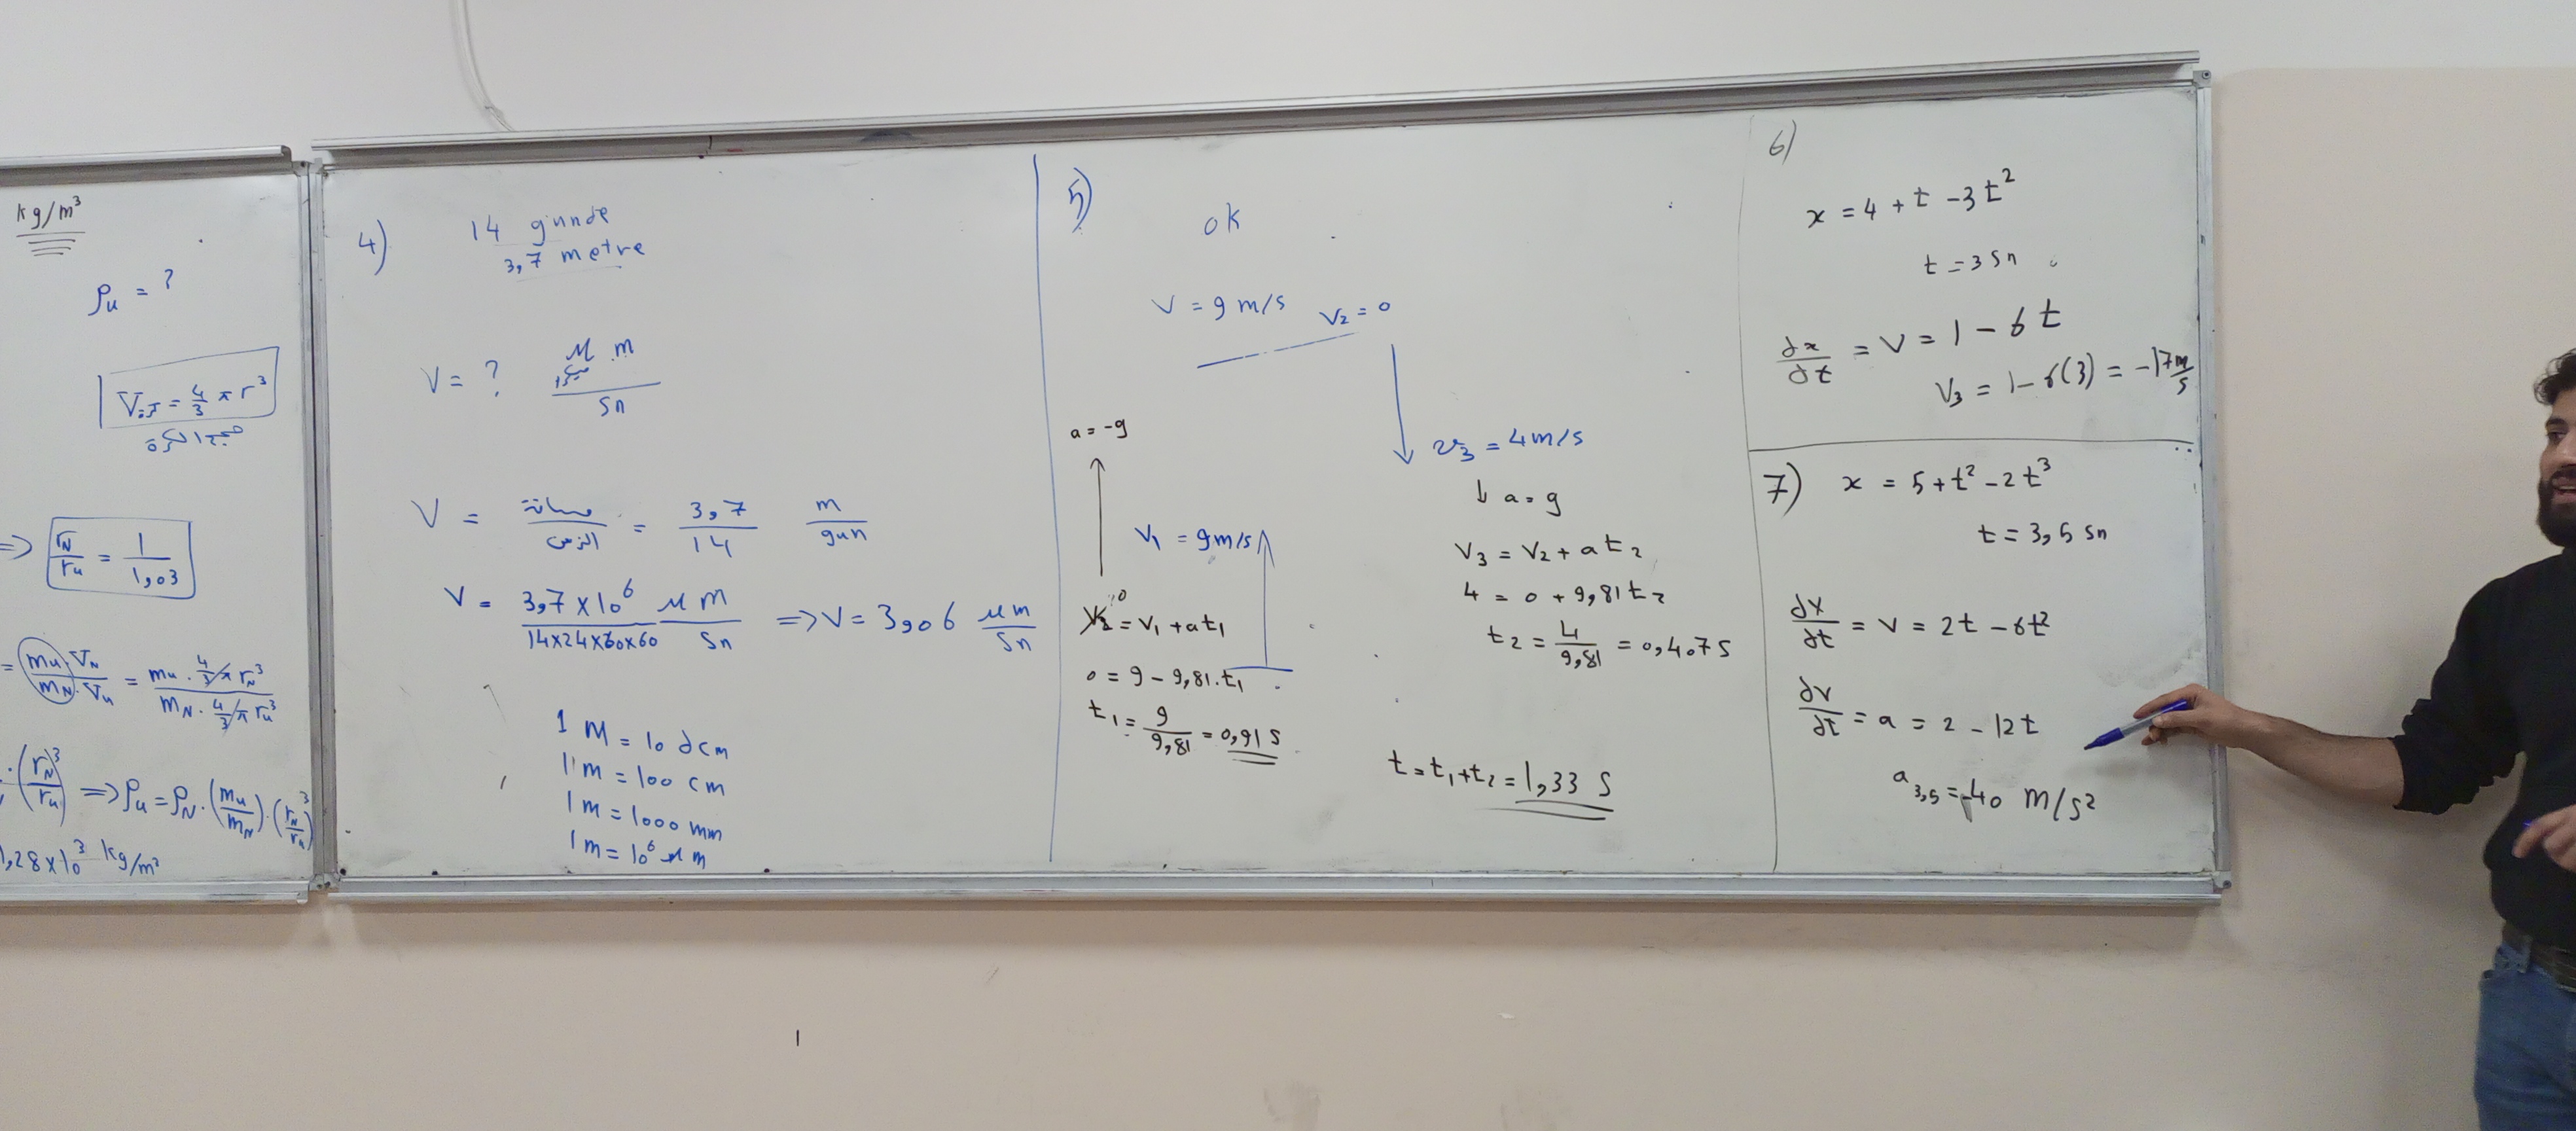 kg/m³
ρu = ?
V = 4/3 π r³
=> rN/ru = 1/1,03
= mu.VN/mN.Vu = mu . 4/3 π rN³ / mN . 4/3 π ru³
. (rN/ru)³ => ρu = ρN . (mu/mN) . (rN/ru)³
1,28x10³ kg/m³
4)
14 günde
3,7 metre
V = ? μ m / Sn
V = مسافة / الزمن = 3,7/14 m/gün
V = 3,7 x 10⁶ / 14x24x60x60 μ m / Sn => V = 3,06 μm/Sn
1 m = 10 dcm
1 m = 100 cm
1 m = 1000 mm
1 m = 10⁶ μ m
5)
ok
V = 9 m/s
V2 = 0
a = -g
V1 = 9m/s
V2 = V1 + at1
0
0 = 9 - 9,81.t1
t1 = 9/9,81 = 0,91 s
v3 = 4m/s
↓ a = g
V3 = V2 + at2
4 = 0 + 9,81t2
t2 = 4/9,81 = 0,407 s
t = t1+t2 = 1,33 s
6)
x = 4 + t - 3t²
t = 3 sn
dx/dt = V = 1 - 6t
V3 = 1 - 6(3) = -17 m/s
7)
x = 5 + t² - 2t³
t = 3,5 sn
dx/dt = v = 2t - 6t²
dv/dt = a = 2 - 12t
a3,5 = -40 m/s²